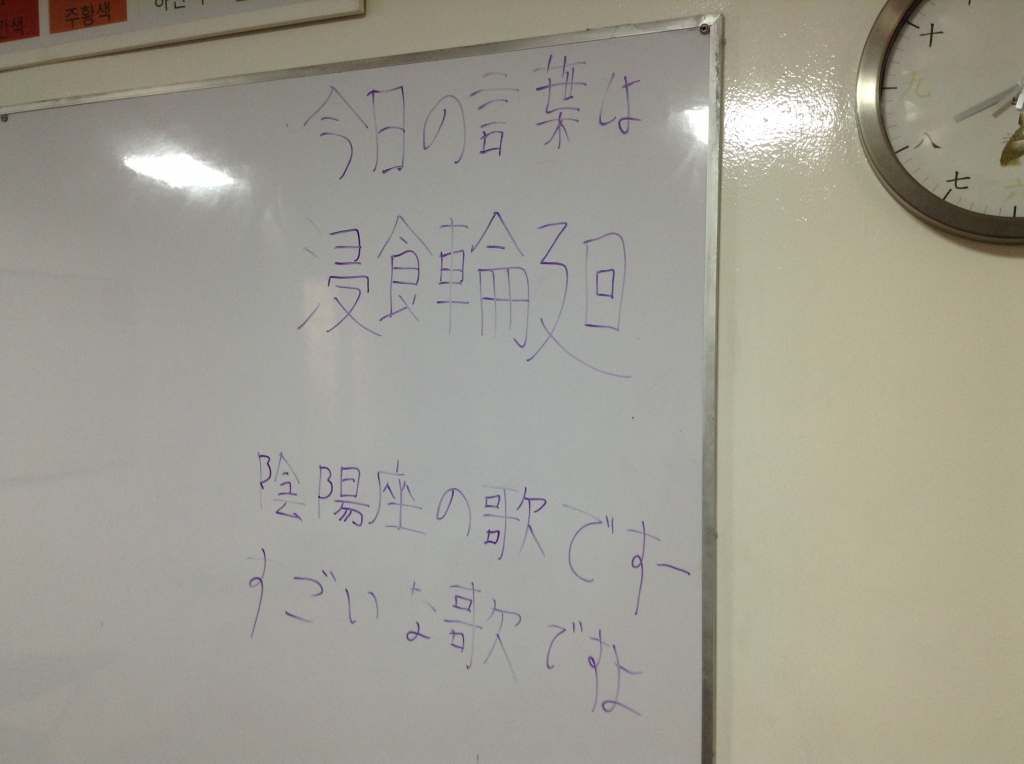 주황색
今日の言葉は
浸食輪廻
陰陽座の歌ですー
すごいな歌ですよ
十
九
八
七
六